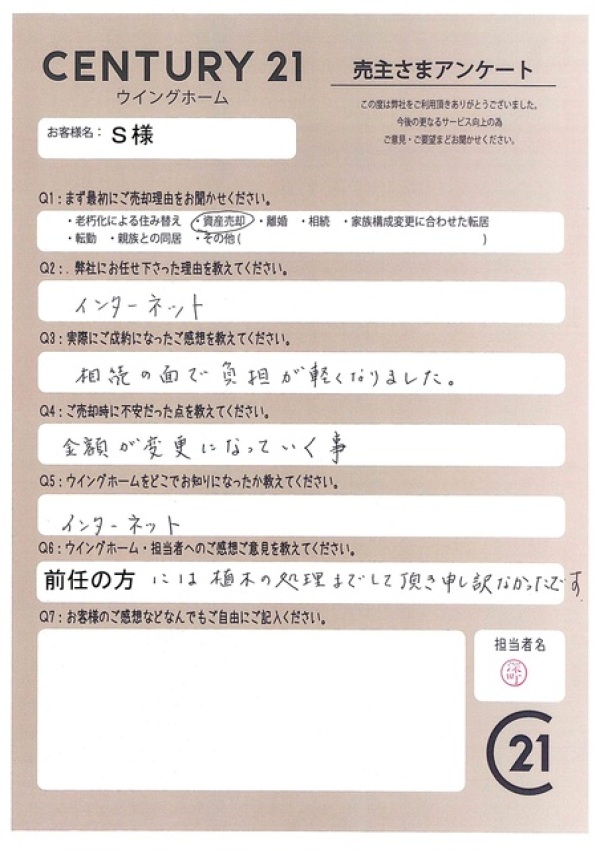 CENTURY 21
ウイングホーム
売主さまアンケート
この度は弊社をご利用頂きありがとうございました。
今後の更なるサービス向上の為
ご意見・ご要望までお聞かせください。
お客様名： S様
Q1：まず最初にご売却理由をお聞かせください。
・老朽化による住み替え ・資産売却 ・離婚 ・相続 ・家族構成変更に合わせた転居
・転勤 ・親族との同居 ・その他( )
Q2：. 弊社にお任せ下さった理由を教えてください。
インターネット
Q3：実際にご成約になったご感想を教えてください。
相続の面で負担が軽くなりました。
Q4：ご売却時に不安だった点を教えてください。
金額が変更になっていく事
Q5：ウイングホームをどこでお知りになったか教えてください。
インターネット
Q6：ウイングホーム・担当者へのご感想ご意見を教えてください。
前任の方 には植木の処理までして頂き申し訳なかったです
Q7：お客様のご感想などなんでもご自由にご記入ください。
担当者名
C21